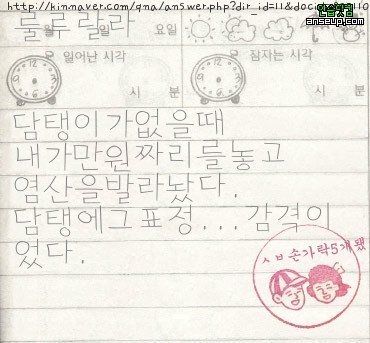 http://kinnaver.com/qna/answer.php?dir_id=11&docid=
안습닷컴
anseup.com
룰루랄라 요일
일어난 시각 잠자는 시각
시 분 시 분
담탱이가없을때
내가만원짜리를놓고
염산을발라놨다.
담탱에그표정...감격이
었다.
ㅅㅂ손가락5개됐